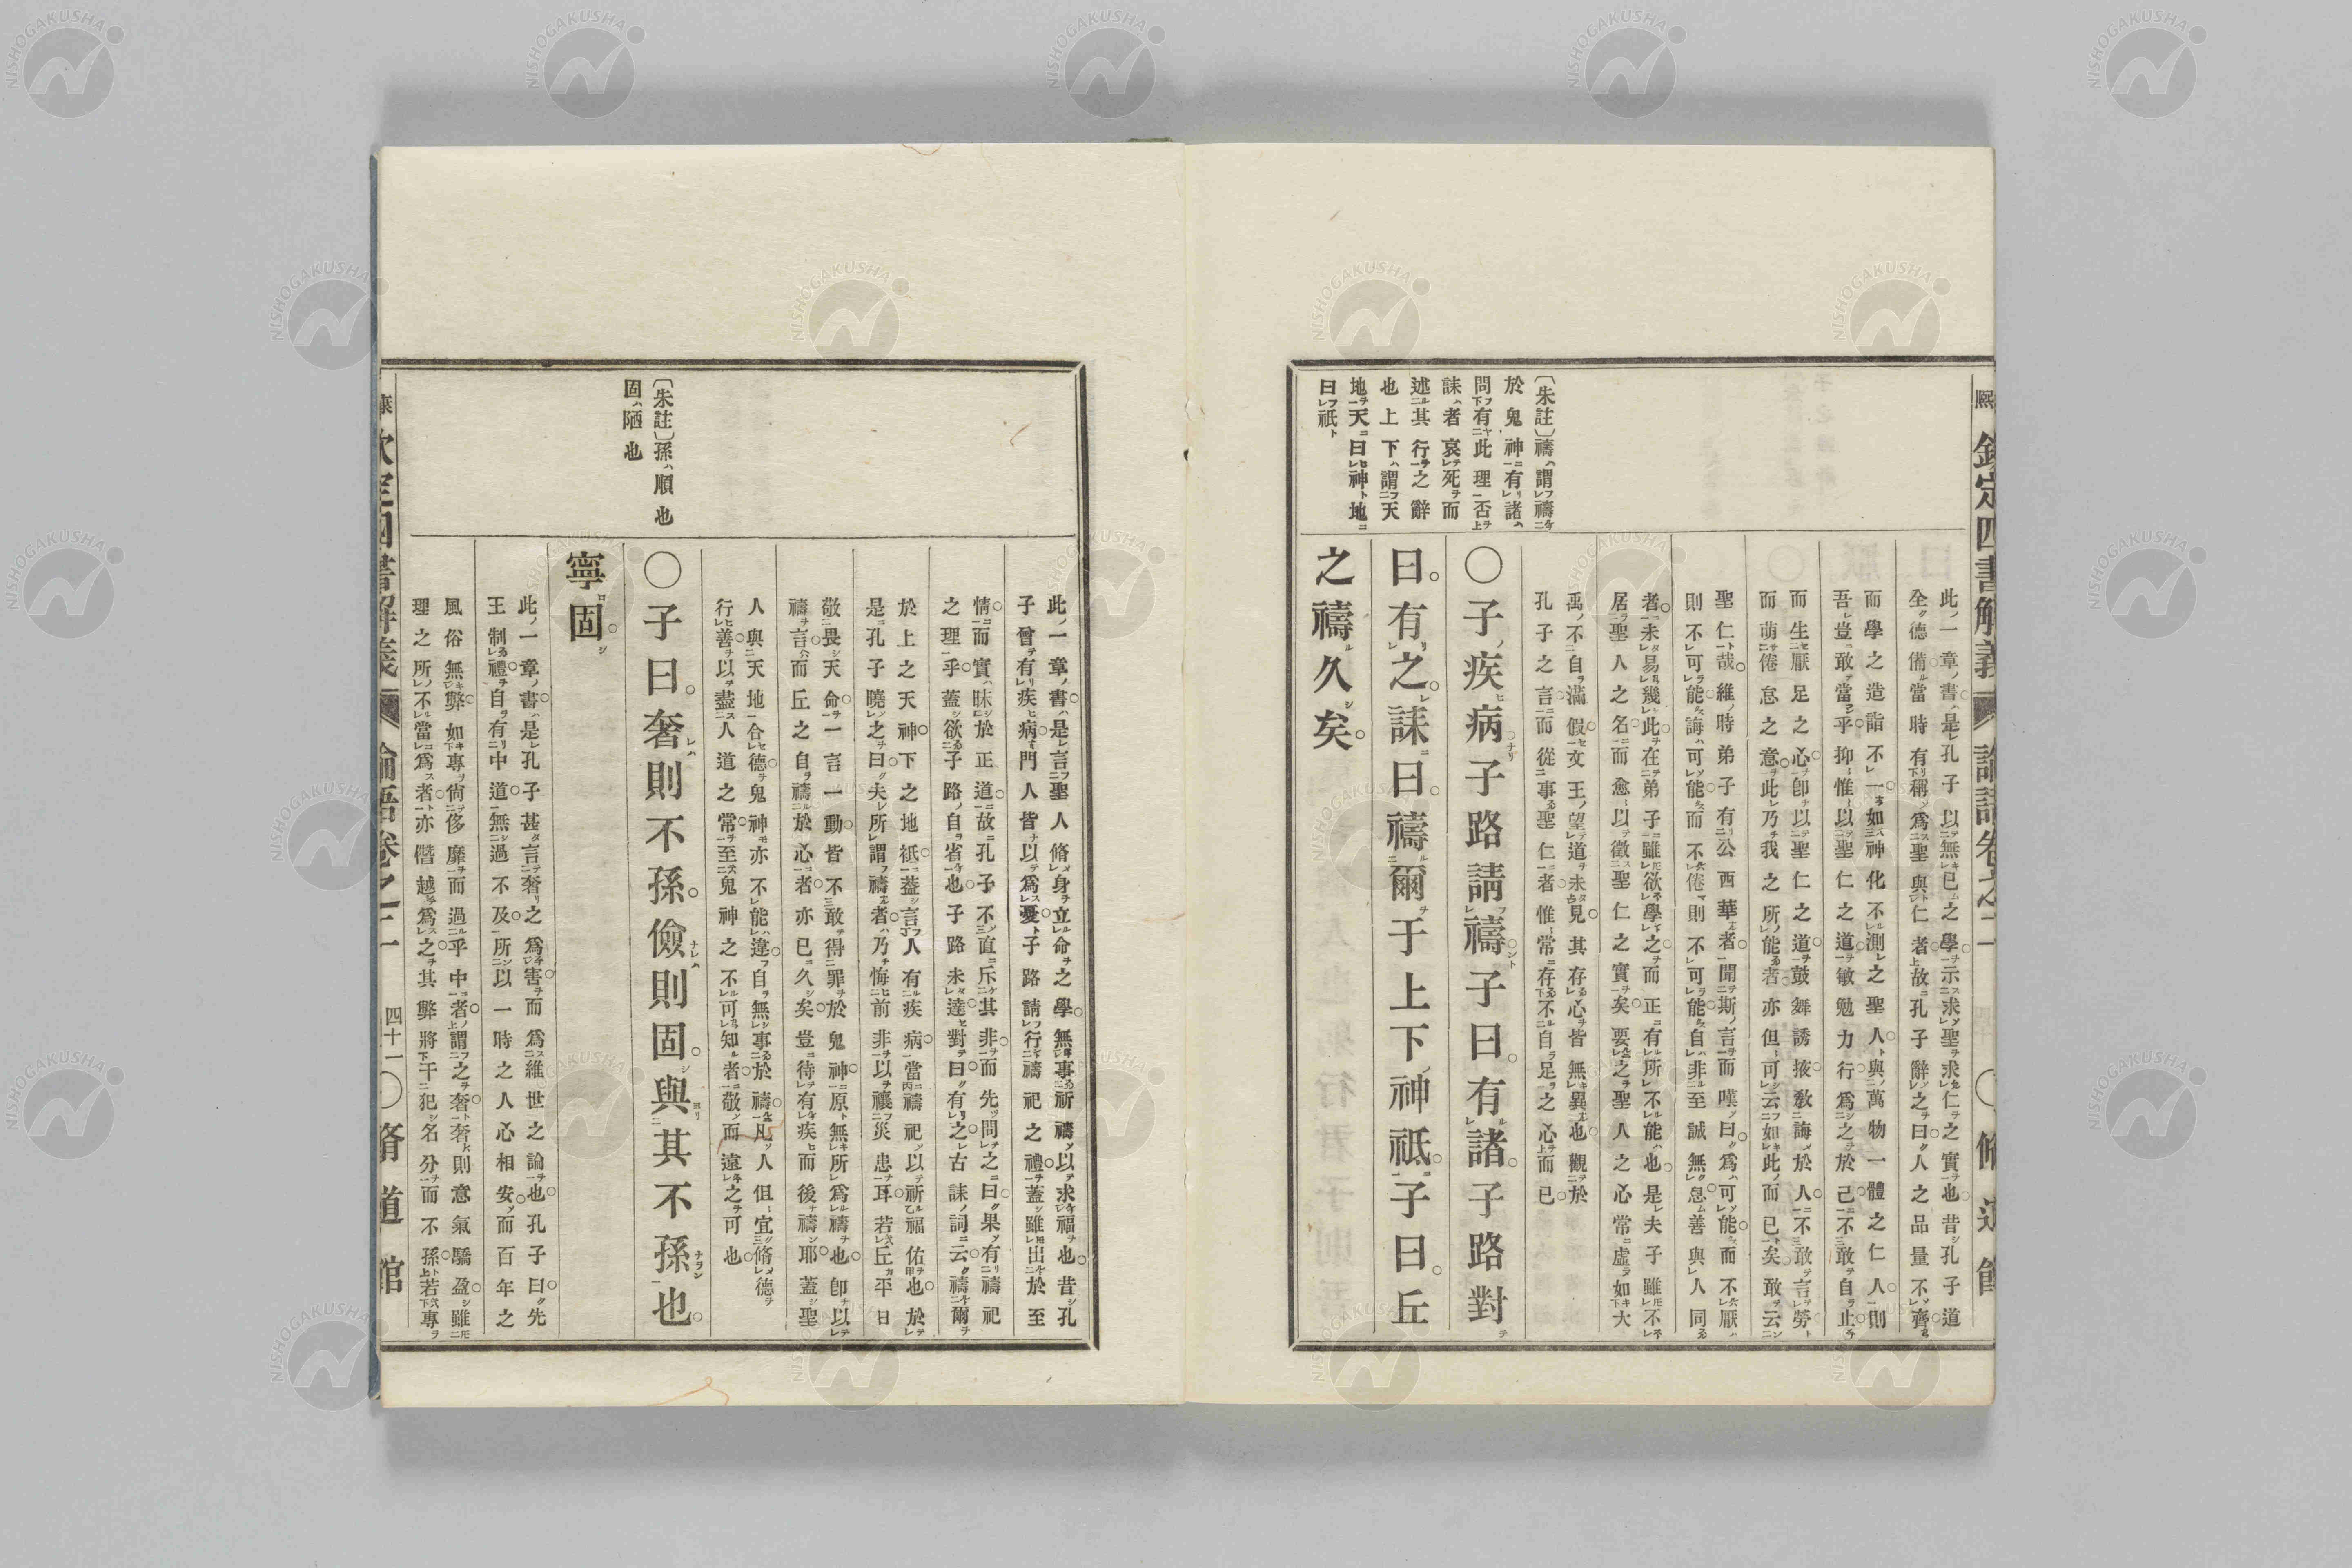 熙
欽定四書解義
論語卷之二
〇脩道館
此一章書是孔子以無已之學示求聖求仁之實也昔孔子道
全德備當時有稱爲聖與仁者故孔子辭之曰人之品量不齊
而學之造詣不一如神化不測之聖人與萬物一體之仁人則
吾豈敢當乎抑惟以聖仁之道敏勉力行爲之於己不敢自止
而生厭足之心卽以聖仁之道鼓舞誘掖敎誨於人不敢言勞
而萌倦怠之意此乃我之所能者亦但可云如此而已矣敢云
聖仁哉維時弟子有公西華者聞斯言而嘆曰爲可能而不厭
則不可能誨可能而不倦則不可能自非至誠無息善與人同
者未易幾此在弟子雖欲學之而正有所不能也是夫子雖不
居聖人之名而愈以徵聖仁之實矣要之聖人之心常虛如大
禹不自滿假文王望道未見其存心皆無異也觀於
孔子之言而從事聖仁者惟常存不自足之心而已
〔朱註〕禱謂禱
於鬼神有諸
問有此理否
誄者哀死而
述其行之辭
也上下謂天
地天曰神地
曰祇
〇子疾病子路請禱子曰有諸子路對
曰有之誄曰禱爾于上下神祇子曰丘
之禱久矣
此一章書是言聖人脩身立命之學無事祈禱以求福也昔孔
子曾有疾病門人皆以爲憂子路請行禱祀之禮蓋雖出於至
情而實昧於正道故孔子不直斥其非而先問之曰果有禱祀
之理乎蓋欲子路自省也子路未達對曰有之古誄詞云禱爾
於上之天神下之地祇蓋言人有疾病當禱祀以祈福佑也於
是孔子曉之曰夫所謂禱者乃悔前非以禳災患耳若丘平日
敬畏天命一言一動皆不敢得罪於鬼神原無所爲禱也卽以
禱言而丘之自禱於心者亦已久矣豈待有疾而後禱耶蓋聖
人與天地合德鬼神亦不能違自無事於禱凡人但宜脩德
行善以盡人道之常至鬼神之不可知者敬而遠之可也
〔朱註〕孫順也
固陋也
〇子曰奢則不孫儉則固與其不孫也
寧固
此一章書是孔子甚言奢之爲害而爲維世之論也孔子曰先
王制禮自有中道無過不及所以一時之人心相安而百年之
風俗無弊如專尙侈靡而過乎中者謂之奢奢則意氣驕盈雖
理之所不當爲者亦僭越爲之其弊將干犯名分而不孫若專
欽定四書解義
論語卷之二
四十一
〇脩道館